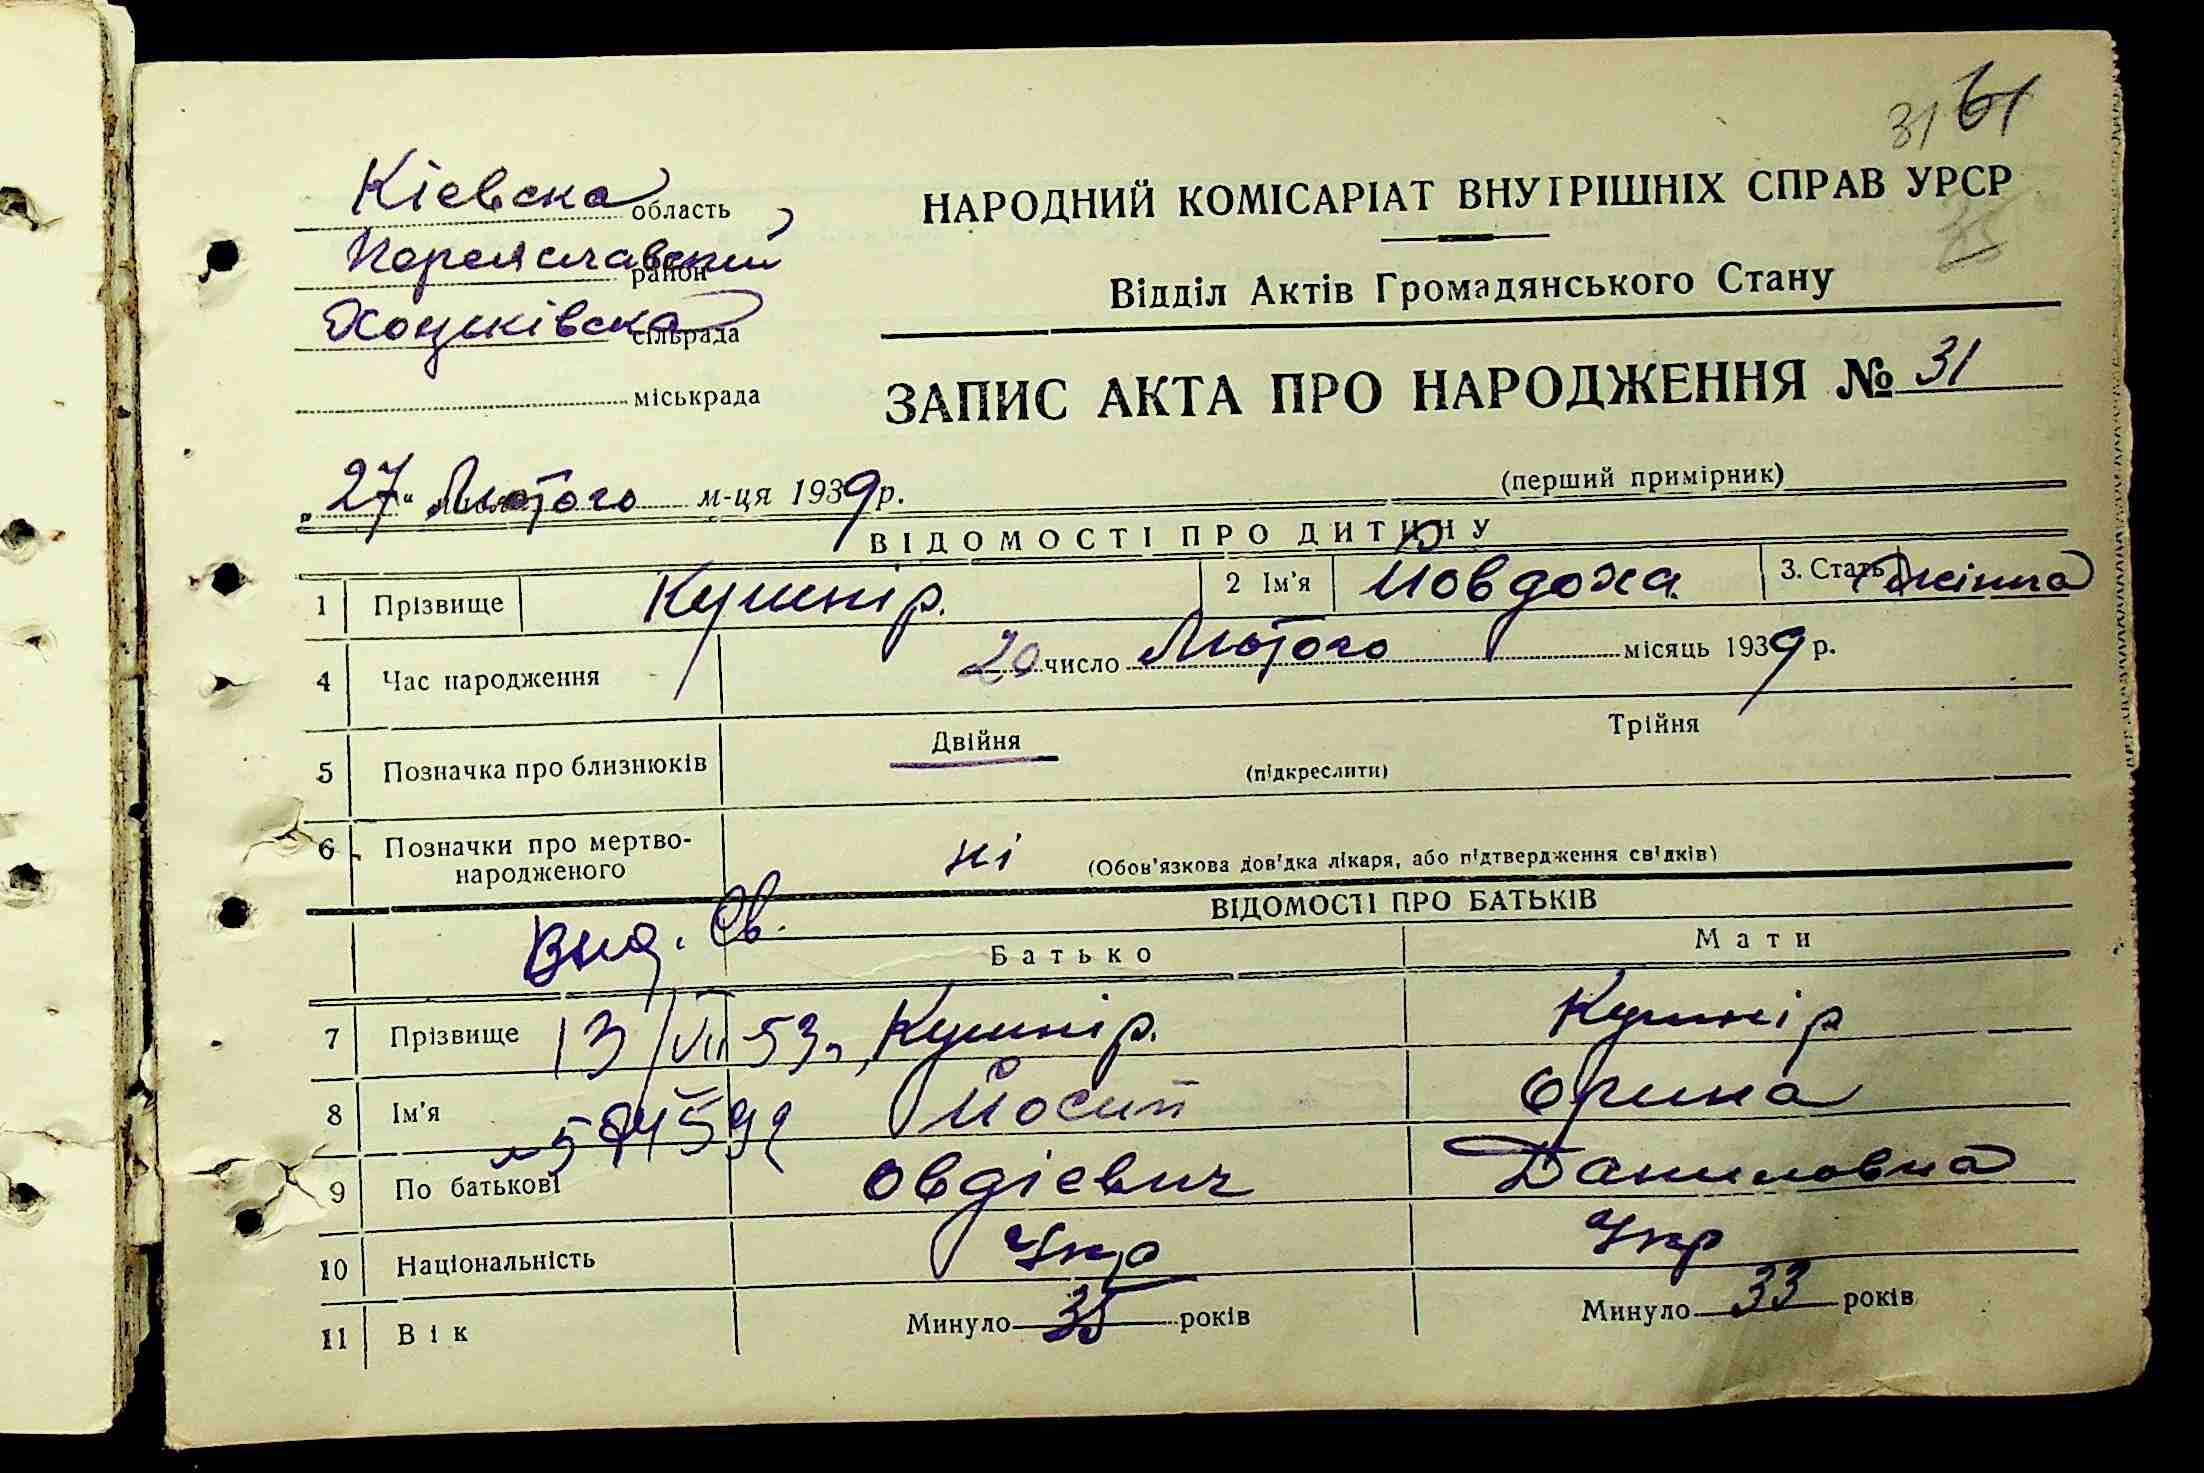 31 61
Кіевска область
НАРОДНИЙ КОМІСАРІАТ ВНУТРІШНІХ СПРАВ УРСР
35
Переяславский район
Відділ Актів Громадянського Стану
Хоцьківска сільрада
міськрада
ЗАПИС АКТА ПРО НАРОДЖЕННЯ № 31
„27“ Лютого м-ця 1939 р.
(перший примірник)
ВІДОМОСТІ ПРО ДИТИНУ
1 Прізвище Кушнір. 2 Ім'я Йовдоха 3. Стать жінча
4 Час народження 20 число Лютого місяць 1939 р.
5 Позначка про близнюків Двійня Трійня
(підкреслити)
6 Позначки про мертво-
народженого ні (Обов'язкова дов'дка лікаря, або підтвердження свідків)
ВІДОМОСТІ ПРО БАТЬКІВ
Вид. Св.
Батько Мати
7 Прізвище 13/VII 53р. Кушнір. Кушнір
8 Ім'я Йосип Орина
9 По батькові Овдієвич Даниловна
10 Національність Укр Укр
11 Вік Минуло 35 років Минуло 33 років